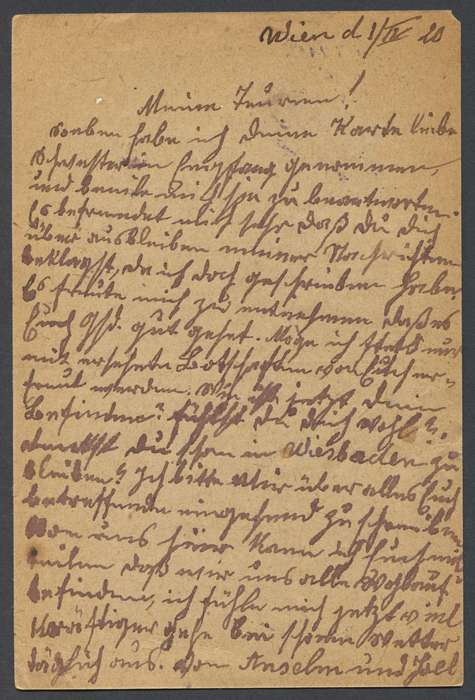 Wien d 1/IV 20
Meine Teuren!
Soeben habe ich deine Karte liebe
Schwester in Empfang genommen,
und beeile mich sie zu beantworten.
Es befremdet mich sehr daß du dich
über ausbleiben meiner Nachrichten
beklagst, da ich doch geschrieben habe.
Es freute mich zu entnehmen daß es
Euch gsd. gut gehet. Möge ich stets nur
mit ersehnten Botschaften von Euch er-
freut werden. Wie ist jetzt dein
Befinden? Fühlst du dich wohl?
du schon in Wiesbaden zu
bleiben? Ich bitte mir über alles Euch
betreffende eingehend zu schreiben
Von uns hier kann ich Euch mit-
teilen daß wir uns alle wohlauf
befinden, ich fühle mich jetzt viel
kräftiger gehe bei schönem Wetter
täglich aus. Von Anselm und